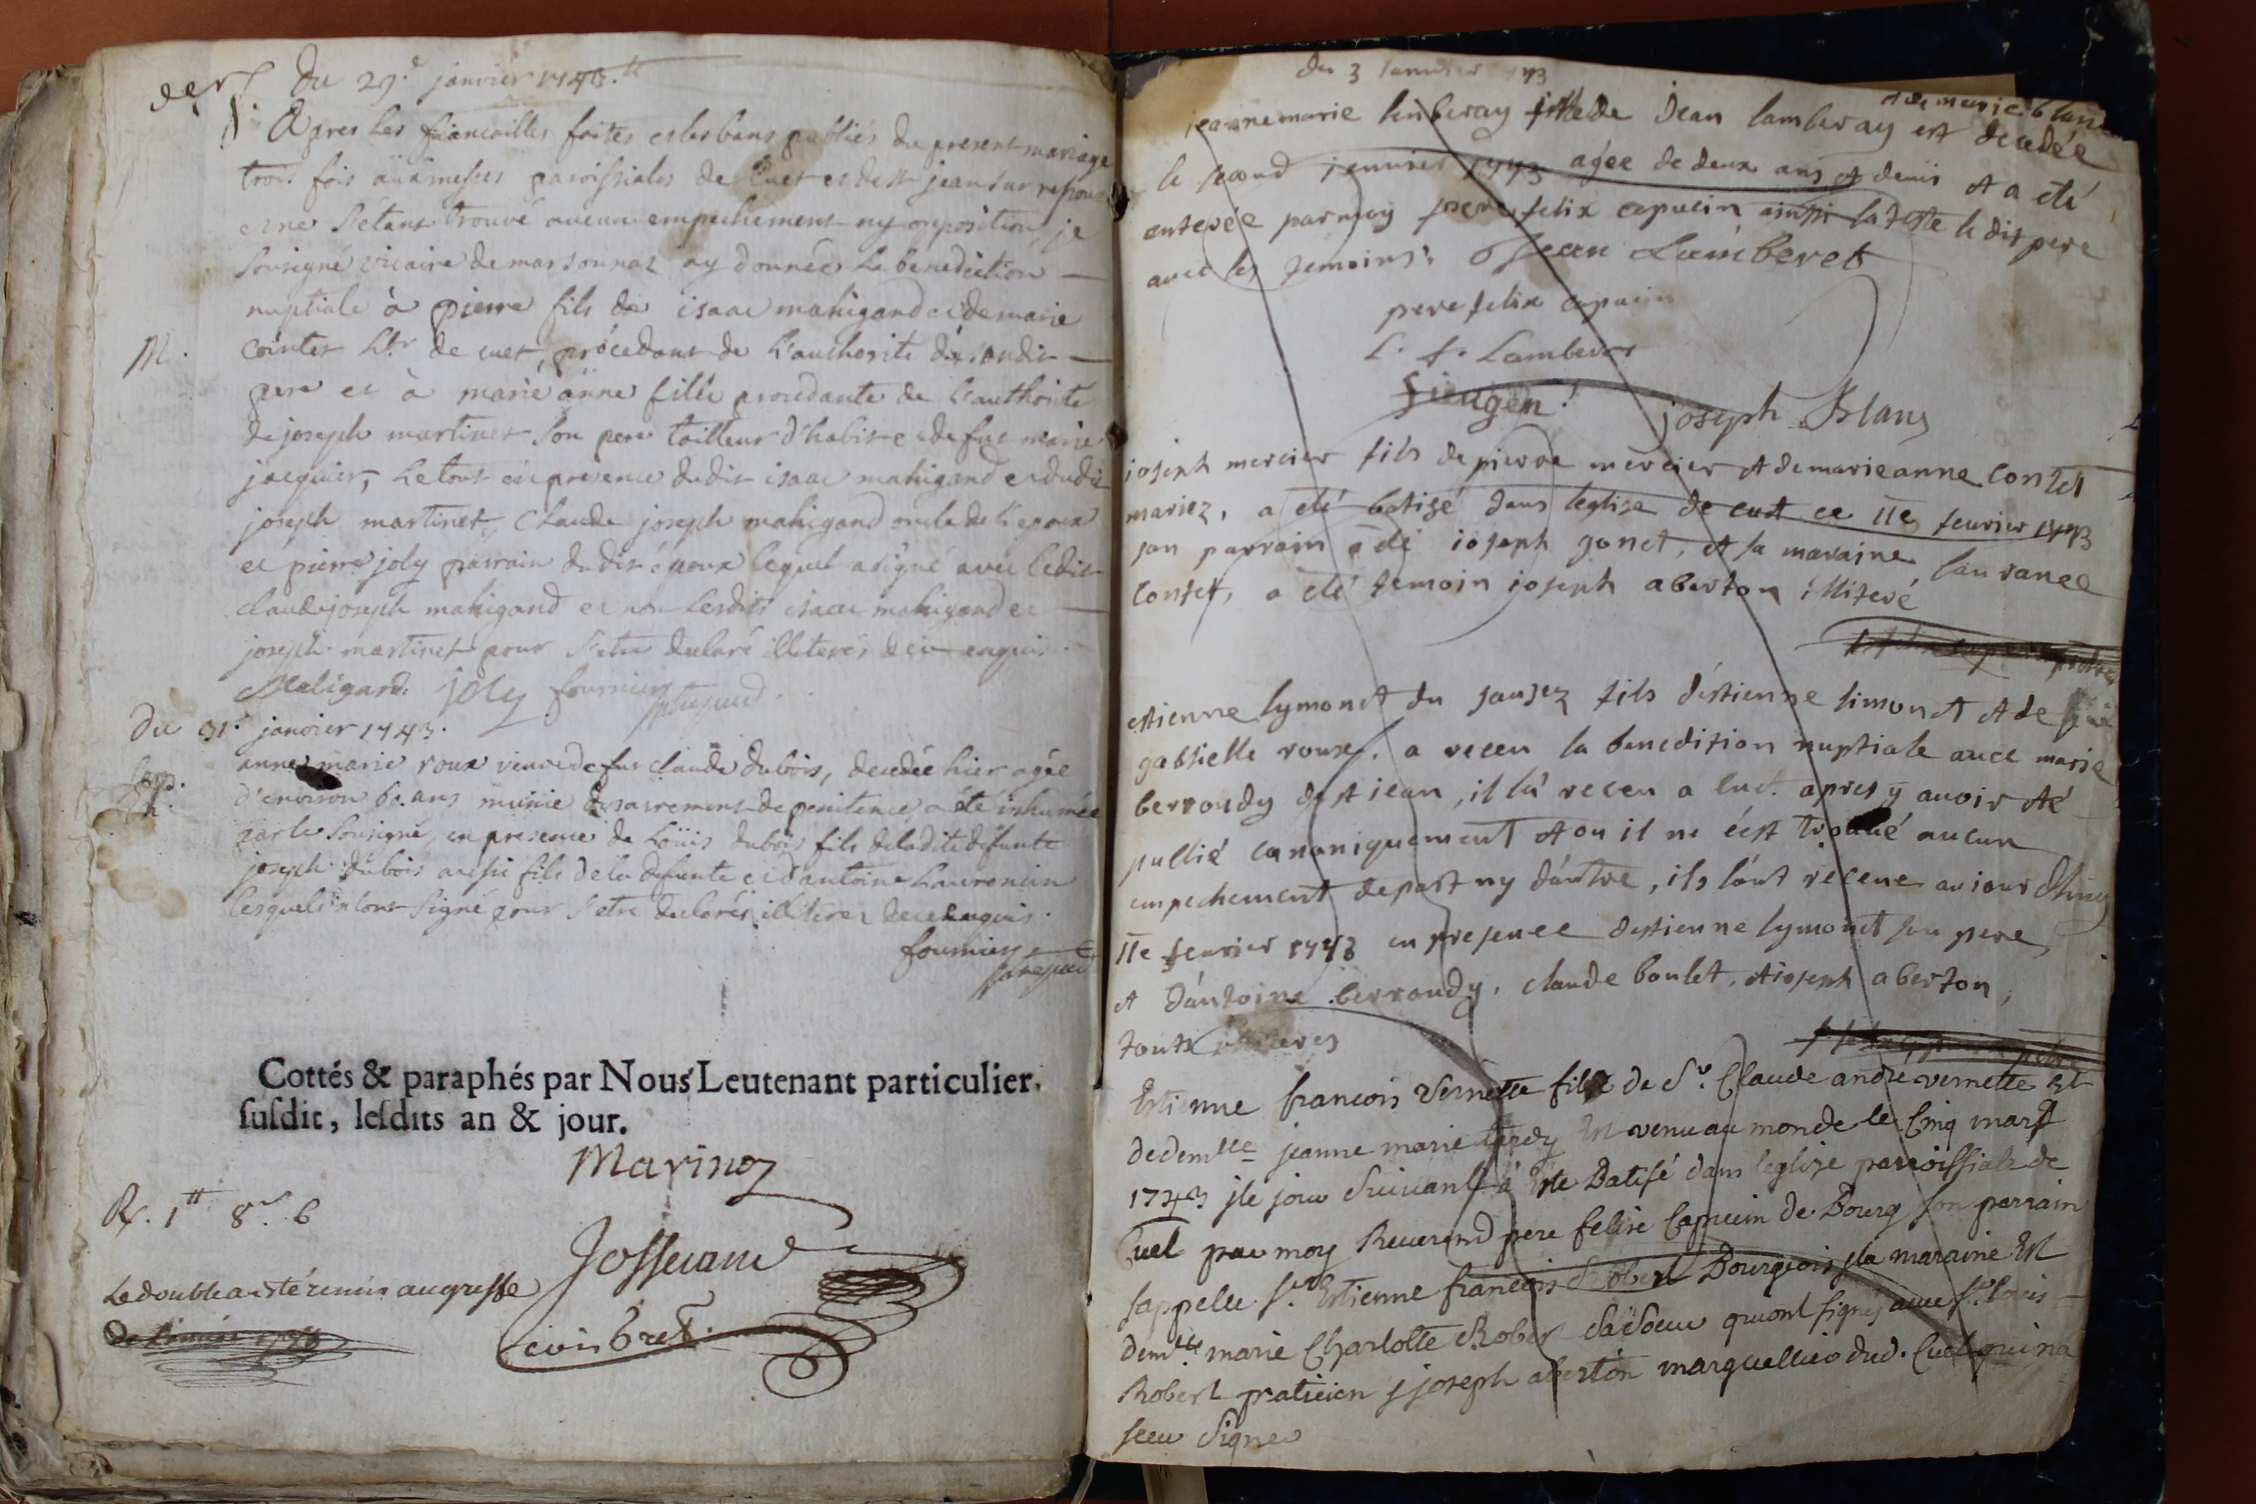 du 29.e janvier 1743.
Apres les fiancailles faites et les bans publiés du present mariage
trois fois aux messes paroissiales de Cuet et de St jean sur ressouz
et ne s'etant trouvé aucun empechement ny opposition, je
sousigné vicaire de marsonnaz ay donnée la benediction
nuptiale à pierre fils de isaac mahigand et de marie
cointet de cuet, procedant de l'authorité de sondit
pere et à marie änne fille procedante de l'authorité
de joseph martinet son pere tailleur d'habit et de fut marie
jacquier, le tout en presence dudit isaac mahigand et dudit
joseph martinet, Claude joseph mahigand oncle de l'epoux
et pierre joly parrain dudit époux lequel a signé avec ledit
claude joseph mahigand et non lesdits isaac mahigand et
joseph martinet pour s'etre declaré illiterés de ce enquis.
Maligand. joly fournier
M.
Du 31.e janvier 1743.
anne marie roux veuve de fut claude dubois, decedée hier agée
d'environ 60. ans munie des sacremens de penitence a été inhumée
par le sousigné, en presence de Loüis dubois fils de ladite defunte
joseph dubois aussi fils de la defunte et d'antoine Laurencin
lesquels n'ont signé pour s'etre declarés illiterez de ce enquis.
fournier
Cottés & paraphés par Nous Leutenant particulier
susdit, lesdits an & jour.
Marinoz
R. 1tt 8s. 6
Josserand
Le double a esté remis au greffe
du 3 Janvier 1743
et de marie blanc
jeanne marie lamberay fille de Jean lamberay est decedée
le second jenvier 1743 agée de deux ans et demis et a eté
enterée par moy pere felix capucin ainssi la teste le dit pere
avec les temoins. Jean Lamberet
pere felix capucin
L. f. Lamberet
joseph Blanc
joseph mercier fils de pierre mercier et de marie anne Contet
mariez, a eté batisé dans leglise de cuet ce 11e feurier 1743
son parrain a eté joseph gonet, et sa maraine laurance
Contet, a eté temoin joseph aberton illiteré
estienne lymonet du saujez fils d'estienne limonet et de
gabrielle roux, a receu la benedition nuptiale auec marie
berroudy de st jean, il la receu a cuet. apres y auoir eté
pullié canoniquement et ou il ne c'est trouué aucun
empechement de part ny d'autre, ils l'ont receue au jour d'huy
11e feurier 1743 en presence destienne lymonet son pere,
et d'antoine berroudy, claude boulet, et joseph aberton,
touts illiteres
Estienne francois Vernette fils de Sr. Claude andré vernette et
de demlle jeanne marie tardy est venu au monde le Cinq mars
1743 et le jour suivant a este Batisé dans leglise parroissiale de
Cuet par moy Reuerend pere felix Capucin de Bourg son parrain
sappelle Sr. Estienne francois Robert Bourgeois et la maraine est
demlle marie Charlotte Robert sa soeur qui ont signés auec Sr. louis
Robert praticien et joseph aberton marguellier dud. Cuet qui na
sceu signer